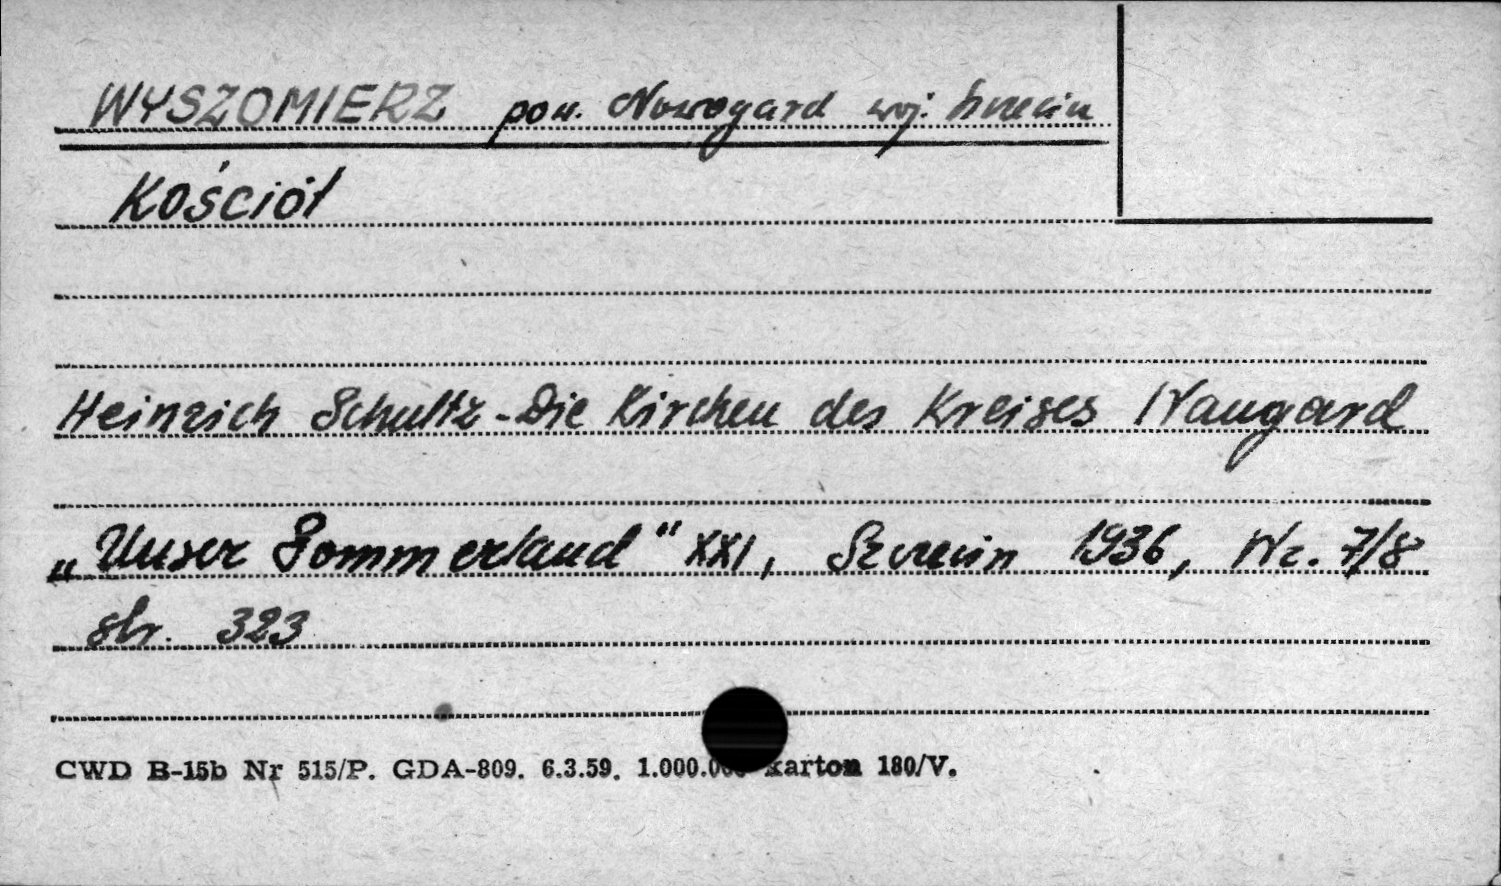 WYSZOMIERZ pow. Nowogard woj. Szczecin
Kościół
Heinrich Schultz - Die Kirchen des Kreises Naugard
„Unser Pommerland" XXI, Szczecin 1936, Nr. 7/8
str. 323
CWD B-15b Nr 515/P. GDA-809. 6.3.59. 1.000.000 karton 180/V.